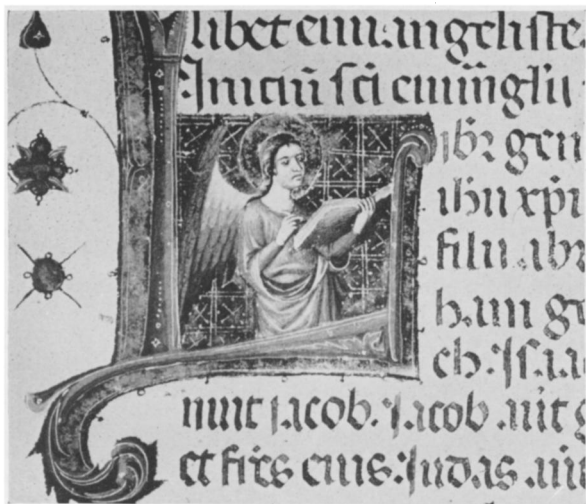 libet euuangeliste
Iniciu sci euuāglii
ibr gen
ihu xpi
filii abr
ham ge
ch. Isaa
nuit iacob. Iacob aut g
et frēs eius. Iudas au